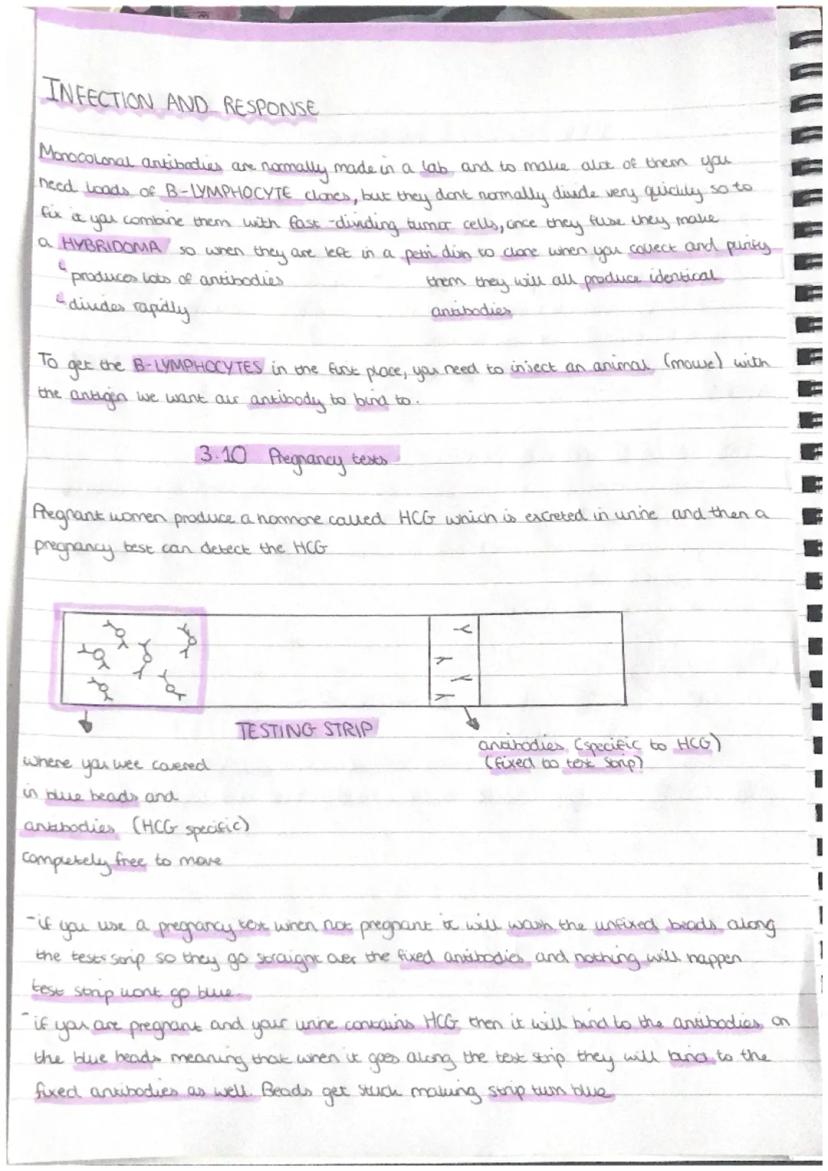 INFECTION AND RESPONSE
Monocolonal antibodies are normally made in a lab and to make alot of them you
need loads of B-LYMPHOCYTE clones, but they dont normally divide very quickly so to
fix it you combine them with fast-dividing tumor cells, once they fuse they make
a HYBRIDOMA so when they are left in a petri dish to clone when you collect and purify
↳ produces lots of antibodies them they will all produce identical
↳ divides rapidly antibodies
To get the B-LYMPHOCYTES in the first place, you need to inject an animal (mouse) with
the antigen we want our antibody to bind to.
3.10 Pregnancy tests
Pregnant women produce a hormone called HCG which is excreted in urine and then a
pregnancy test can detect the HCG
TESTING STRIP
where you wee covered
in blue beads and
antibodies (HCG specific)
completely free to move
antibodies (specific to HCG)
(fixed to test strip)
-if you use a pregnancy test when not pregnant it will wash the unfixed beads along
the tests strip so they go straight over the fixed antibodies and nothing will happen
test strip wont go blue.
-if you are pregnant and your urine contains HCG then it will bind to the antibodies on
the blue beads meaning that when it goes along the test strip they will bind to the
fixed antibodies as well. Beads get stuck making strip turn blue